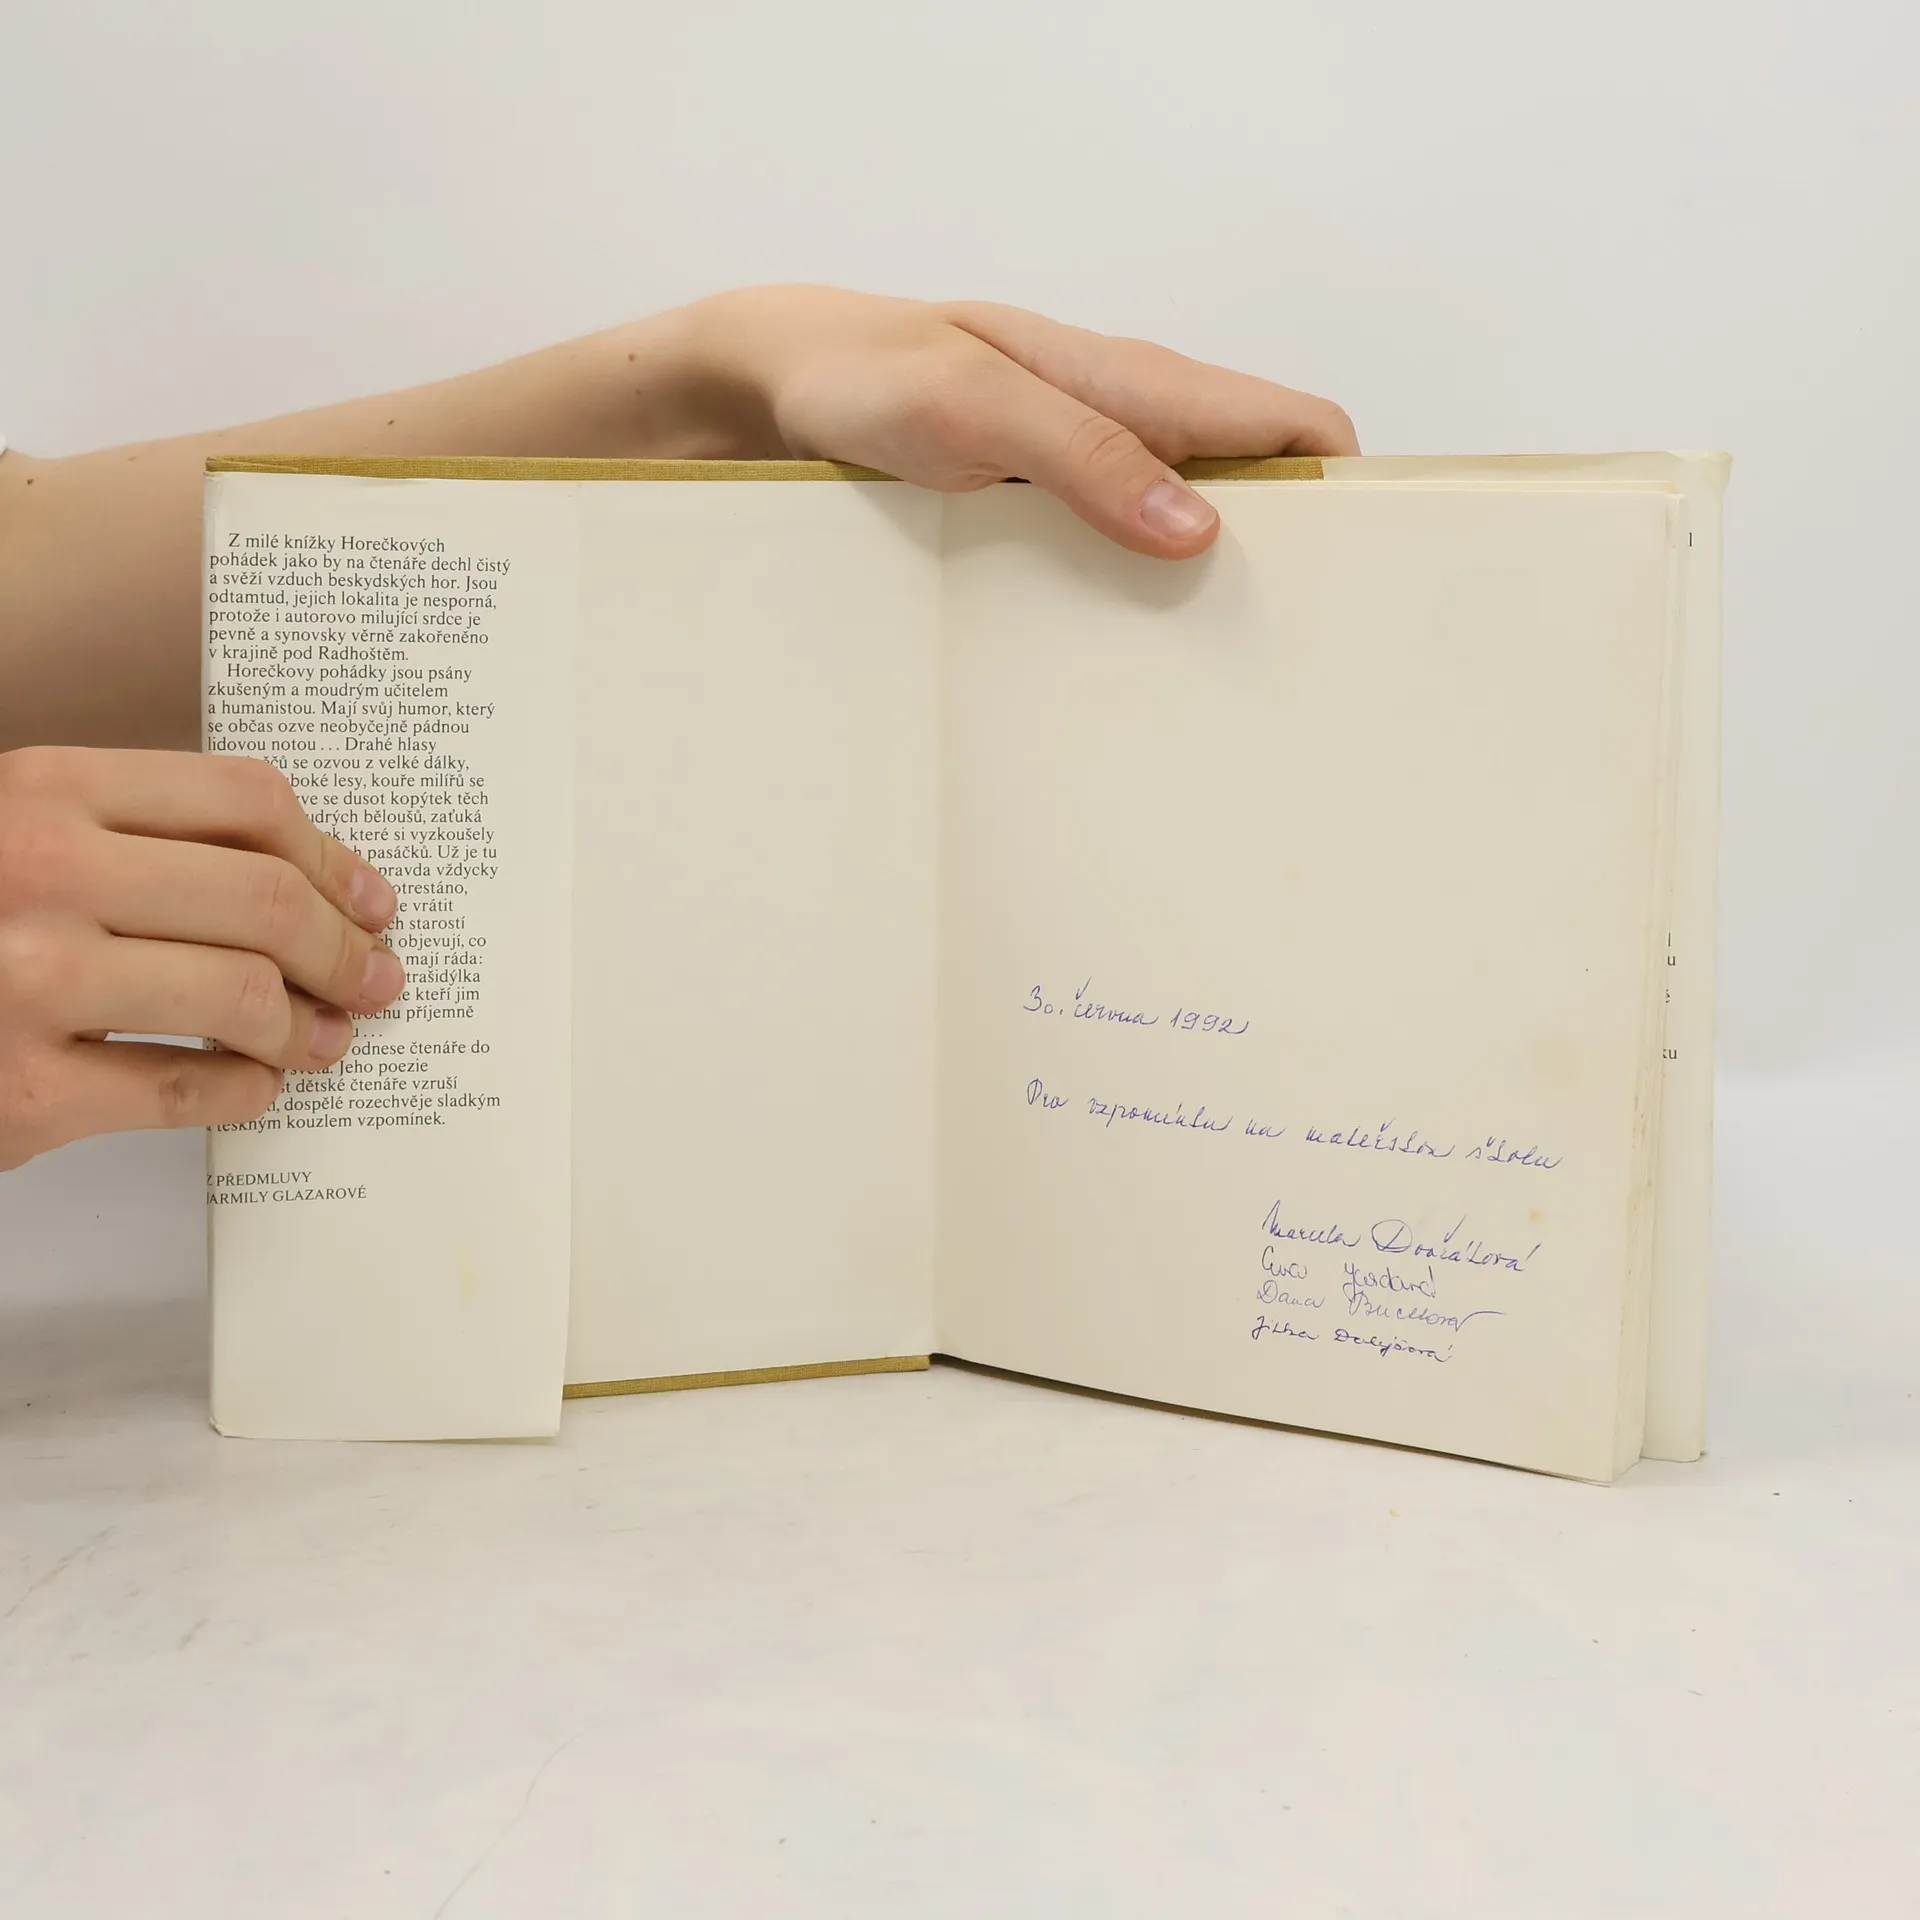 Z milé knížky Horečkových
pohádek jako by na čtenáře dechl čistý
a svěží vzduch beskydských hor. Jsou
odtamtud, jejich lokalita je nesporná,
protože i autorovo milující srdce je
pevně a synovsky věrně zakořeněno
v krajině pod Radhoštěm.
Horečkovy pohádky jsou psány
zkušeným a moudrým učitelem
a humanistou. Mají svůj humor, který
se občas ozve neobyčejně pádnou
lidovou notou... Drahé hlasy
se ozvou z velké dálky,
lesy, kouře milířů se
se dusot kopýtek těch
běloušů, zaťuká
které si vyzkoušely
pasáčků. Už je tu
pravda vždycky
vrátit
starostí
objevují, co
mají ráda:
kteří jim
příjemně
odnese čtenáře do
světa. Jeho poezie
dětské čtenáře vzruší
dospělé rozechvěje sladkým
teskným kouzlem vzpomínek.
Z PŘEDMLUVY
JARMILY GLAZAROVÉ
30. června 1992
Pro vzpomínku na mateřskou školu
Marcela Dvořáková
Eva
Dana
Jitka